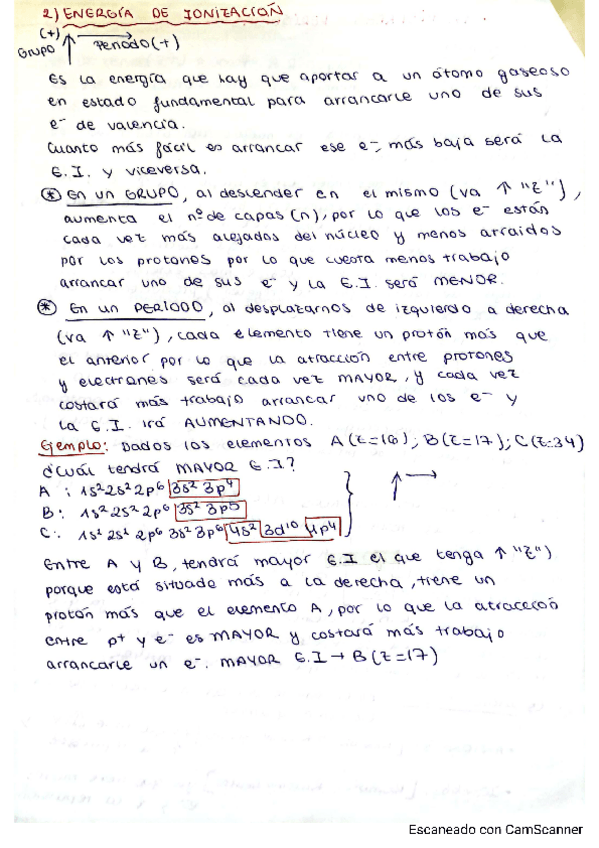 2) ENERGÍA DE IONIZACIÓN
(+)
GRUPO ↑ → Periodo (+)
Es la energía que hay que aportar a un átomo gaseoso
en estado fundamental para arrancarle uno de sus
e⁻ de valencia.
Cuanto más fácil es arrancar ese e⁻, más baja será la
E.I. y viceversa.
* En un GRUPO, al descender en el mismo (va ↑ "Z"),
aumenta el nº de capas (n), por lo que los e⁻ están
cada vez más alejados del núcleo y menos arraidos
por los protones por lo que cuesta menos trabajo
arrancar uno de sus e⁻ y la E.I. será MENOR.
* En un PERÍODO, al desplazarnos de izquierdo a derecha
(va ↑ "Z"), cada elemento tiene un protón más que
el anterior por lo que la atracción entre protones
y electrones será cada vez MAYOR, y cada vez
costará más trabajo arrancar uno de los e⁻ y
la E.I. irá AUMENTANDO.
Ejemplo: Dados los elementos A(Z=16); B(Z=17); C(Z=34)
¿Cuál tendrá MAYOR E.I?
A : 1s² 2s² 2p⁶ 3s² 3p⁴
B : 1s² 2s² 2p⁶ 3s² 3p⁵
C : 1s² 2s² 2p⁶ 3s² 3p⁶ 4s² 3d¹⁰ 4p⁴
Entre A y B, tendrá mayor E.I el que tenga ↑ "Z")
porque está situade más a la derecha, tiene un
protón más que el elemento A, por lo que la atracción
entre p⁺ y e⁻ es MAYOR y costará más trabajo
arrancarle un e⁻. MAYOR E.I → B(Z=17)
Escaneado con CamScanner